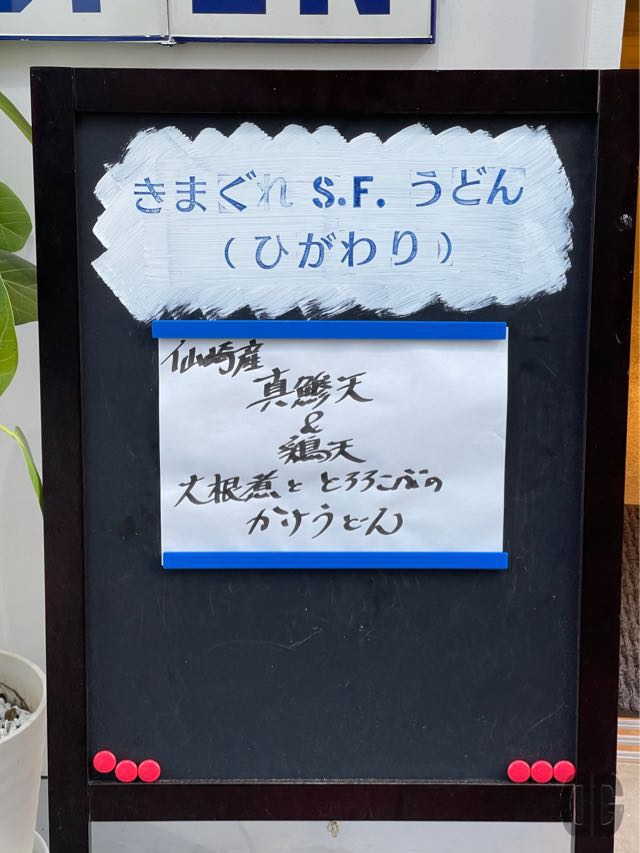 OPEN
きまぐれ S.F. うどん
(ひがわり)
仙崎産
真鯵天
&
鶏天
大根煮と とろろこぶの
かけうどん